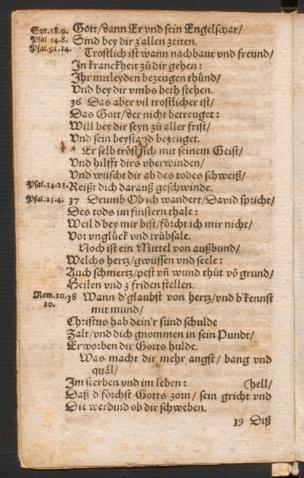 Syr.38.9. Gott/dann Er vnd sein Engelschar/
Psal.14.8. Sind bey dir z'allen zeiten.
Psal.91.14. Trostlich ist wann nachbaur vnd freund/
In kranckheit zů dir gehen:
Ihr mitleyden bezeugen thůnd/
Vnd bey dir vmbs beth stehen.
36 Das aber vil trostlicher ist/
Das Gott/der nicht betreuget:
Will bey dir seyn zů aller frist/
Vnd sein beystand bezeuget.
Er selb tröst dich mit seinem Geist/
Vnd hilfft dirs vberwinden/
Vnd wüscht dir ab des todes schweiß/
Psal.34.23. Reißt dich darauß geschwinde.
Psal.23.4. 37 Drumb Ob ich wandert/David spricht/
Des tods im finstern thale:
Weil d'bey mir bist/förcht ich mir nicht/
Vor vnglück vnd trübsal.
Noch ist ein Mittel von außbund/
Welchs hertz/gwüssen vnd seele:
Auch schmertz/pest vñ wund thůt võ grund/
Heilen vnd z'friden stellen.
Rom.10. 38 Wann d'glaubst von hertz/vnd b'kennst
10. mit mund/
Christus hab dein'r sünd schulde
Zalt/vnd dich gnommen in sein Pundt/
Erworben dir Gotts hulde.
Was macht dir mehr angst/ bang vnd
quäl/
Im sterben vnd im leben: (hell/
Daß d'förchst Gotts zorn/ sein gricht vnd
Die werdind ob dir schweben.
39 Diß